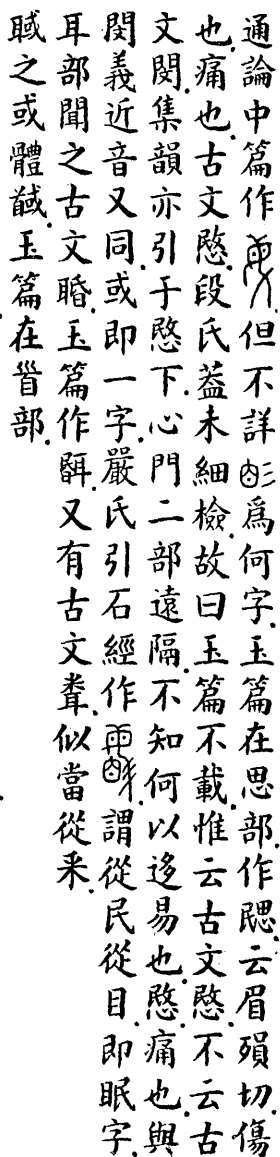 通論中篇作但不詳為何字玉篇在思部作䰄云眉殞切傷
也痛也古文愍段氏葢未細檢故曰玉篇不載惟云古文愍不云古
文閔集韻亦引于愍下心門二部遠隔不知何以迻易也愍痛也與
閔義近音又同或即一字嚴氏引石經作謂從民從目即眠字
耳部聞之古文䎽玉篇作䎹又有古文耷似當從釆
聝之或體馘玉篇在𩠐部